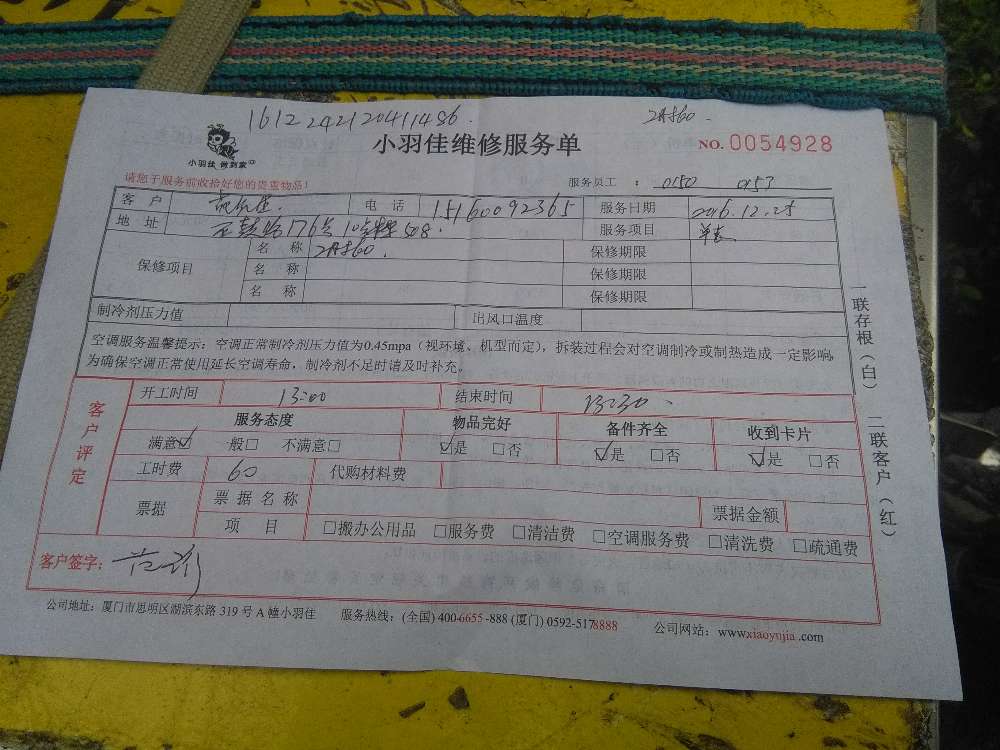 1612242120411486
小羽佳 做到家
小羽佳维修服务单
NO.0054928
请您于服务前收拾好您的贵重物品!
服务员工 : 0150 0153
客户 电话 15160092365 服务日期 2016.12.25
地址 176号 服务项目
保修项目 名称 保修期限
名称 保修期限
名称 保修期限
制冷剂压力值 出风口温度
空调服务温馨提示:空调正常制冷剂压力值为0.45mpa(视环境、机型而定),拆装过程会对空调制冷或制热造成一定影响,
为确保空调正常使用延长空调寿命,制冷剂不足时请及时补充。
客户评定
开工时间 13:00 结束时间 13:30
服务态度 物品完好 备件齐全 收到卡片
满意☑ 一般□ 不满意□ ☑是 □否 ☑是 □否 ☑是 □否
工时费 60 代购材料费
票据 票据名称 票据金额
项目 □搬办公用品 □服务费 □清洁费 □空调服务费 □清洗费 □疏通费
客户签字:
一联存根(白) 二联客户(红)
公司地址:厦门市思明区湖滨东路 319 号 A 幢小羽佳 服务热线:(全国) 400-6655-888 (厦门) 0592-5178888 公司网站:www.xiaoyujia.com